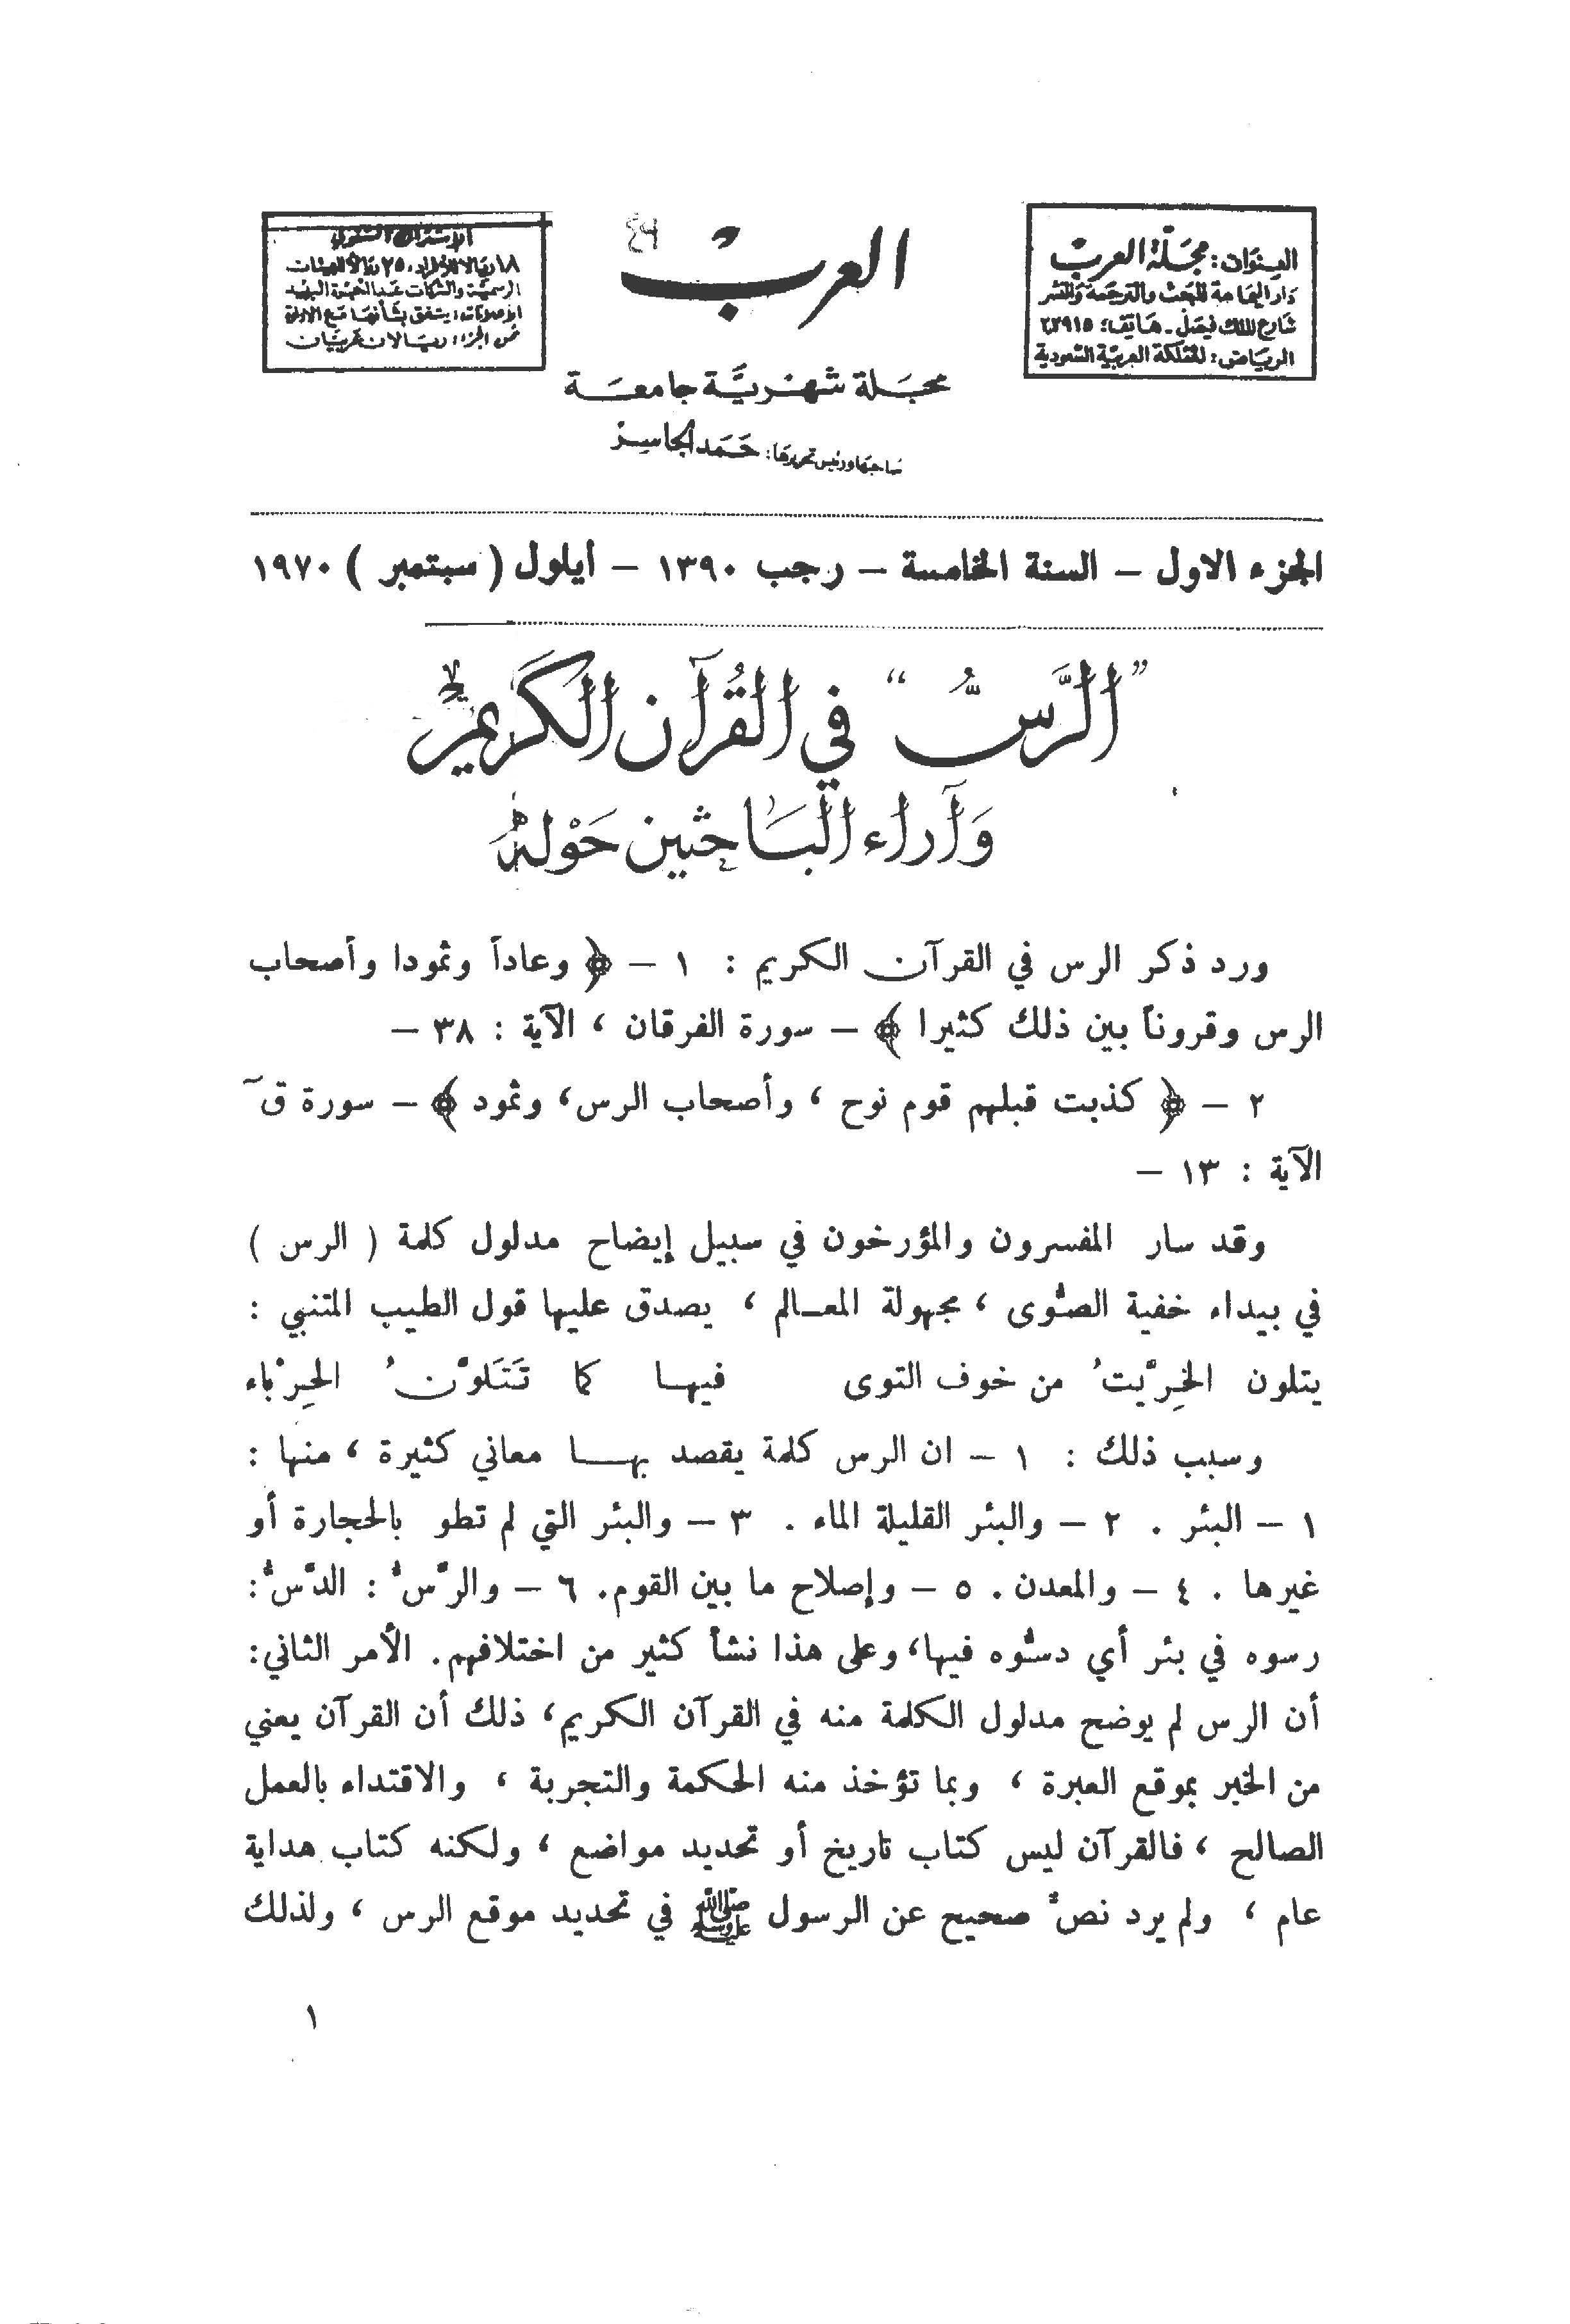 العنوان: مجلة العرب
دار اليمامة للبحث والترجمة والنشر
شارع الملك فيصل ـ هاتف: ٢٢٩١٥
الرياض: المملكة العربية السعودية
٤٩
العرب
مجلة شهرية جامعة
صاحبها ورئيس تحريرها: حمد الجاسر
الاشتراك السنوي
١٨ ريالا للأفراد، ٢٥ ريالا للهيئات
الرسمية والشركات
الاعلانات: يتفق بشأنها مع الادارة
ثمن الجزء: ريالان عربيان
الجزء الاول – السنة الخامسة – رجب ١٣٩٠ – أيلول ( سبتمبر ) ١٩٧٠
"الرَّسُّ" في القُرآن الكَريم
وَآراء البَاحثين حَوْله
ورد ذكر الرس في القرآن الكريم : ١ – ﴿ وعاداً وثمودا وأصحاب
الرس وقروناً بين ذلك كثيرا ﴾ – سورة الفرقان ، الآية : ٣٨ –
٢ – ﴿ كذبت قبلهم قوم نوح ، وأصحاب الرس، وثمود ﴾ – سورة قۤ
الآية : ١٣ –
وقد سار المفسرون والمؤرخون في سبيل إيضاح مدلول كلمة ( الرس )
في بيداء خفية الصُّوى ، مجهولة المعـالم ، يصدق عليها قول الطيب المتنبي :
يتلون الخِرِّيتُ من خوف التوى فيهـا كما تَتَلوَّنُ الحِرْباء
وسبب ذلك : ١ – ان الرس كلمة يقصد بهـا معاني كثيرة ، منها :
١ – البئر . ٢ – والبئر القليلة الماء . ٣ – والبئر التي لم تطو بالحجارة أو
غيرها . ٤ – والمعدن . ٥ – وإصلاح ما بين القوم. ٦ – والرَّسُّ : الدَّسُّ:
رسوه في بئر أي دسُّوه فيها، وعلى هذا نشأ كثير من اختلافهم. الأمر الثاني:
أن الرس لم يوضح مدلول الكلمة منه في القرآن الكريم، ذلك أن القرآن يعني
من الخبر بموقع العبرة ، وبما تؤخذ منه الحكمة والتجربة ، والاقتداء بالعمل
الصالح ، فالقرآن ليس كتاب تاريخ أو تحديد مواضع ، ولكنه كتاب هداية
عام ، ولم يرد نصٌّ صحيح عن الرسول ﷺ في تحديد موقع الرس ، ولذلك
١